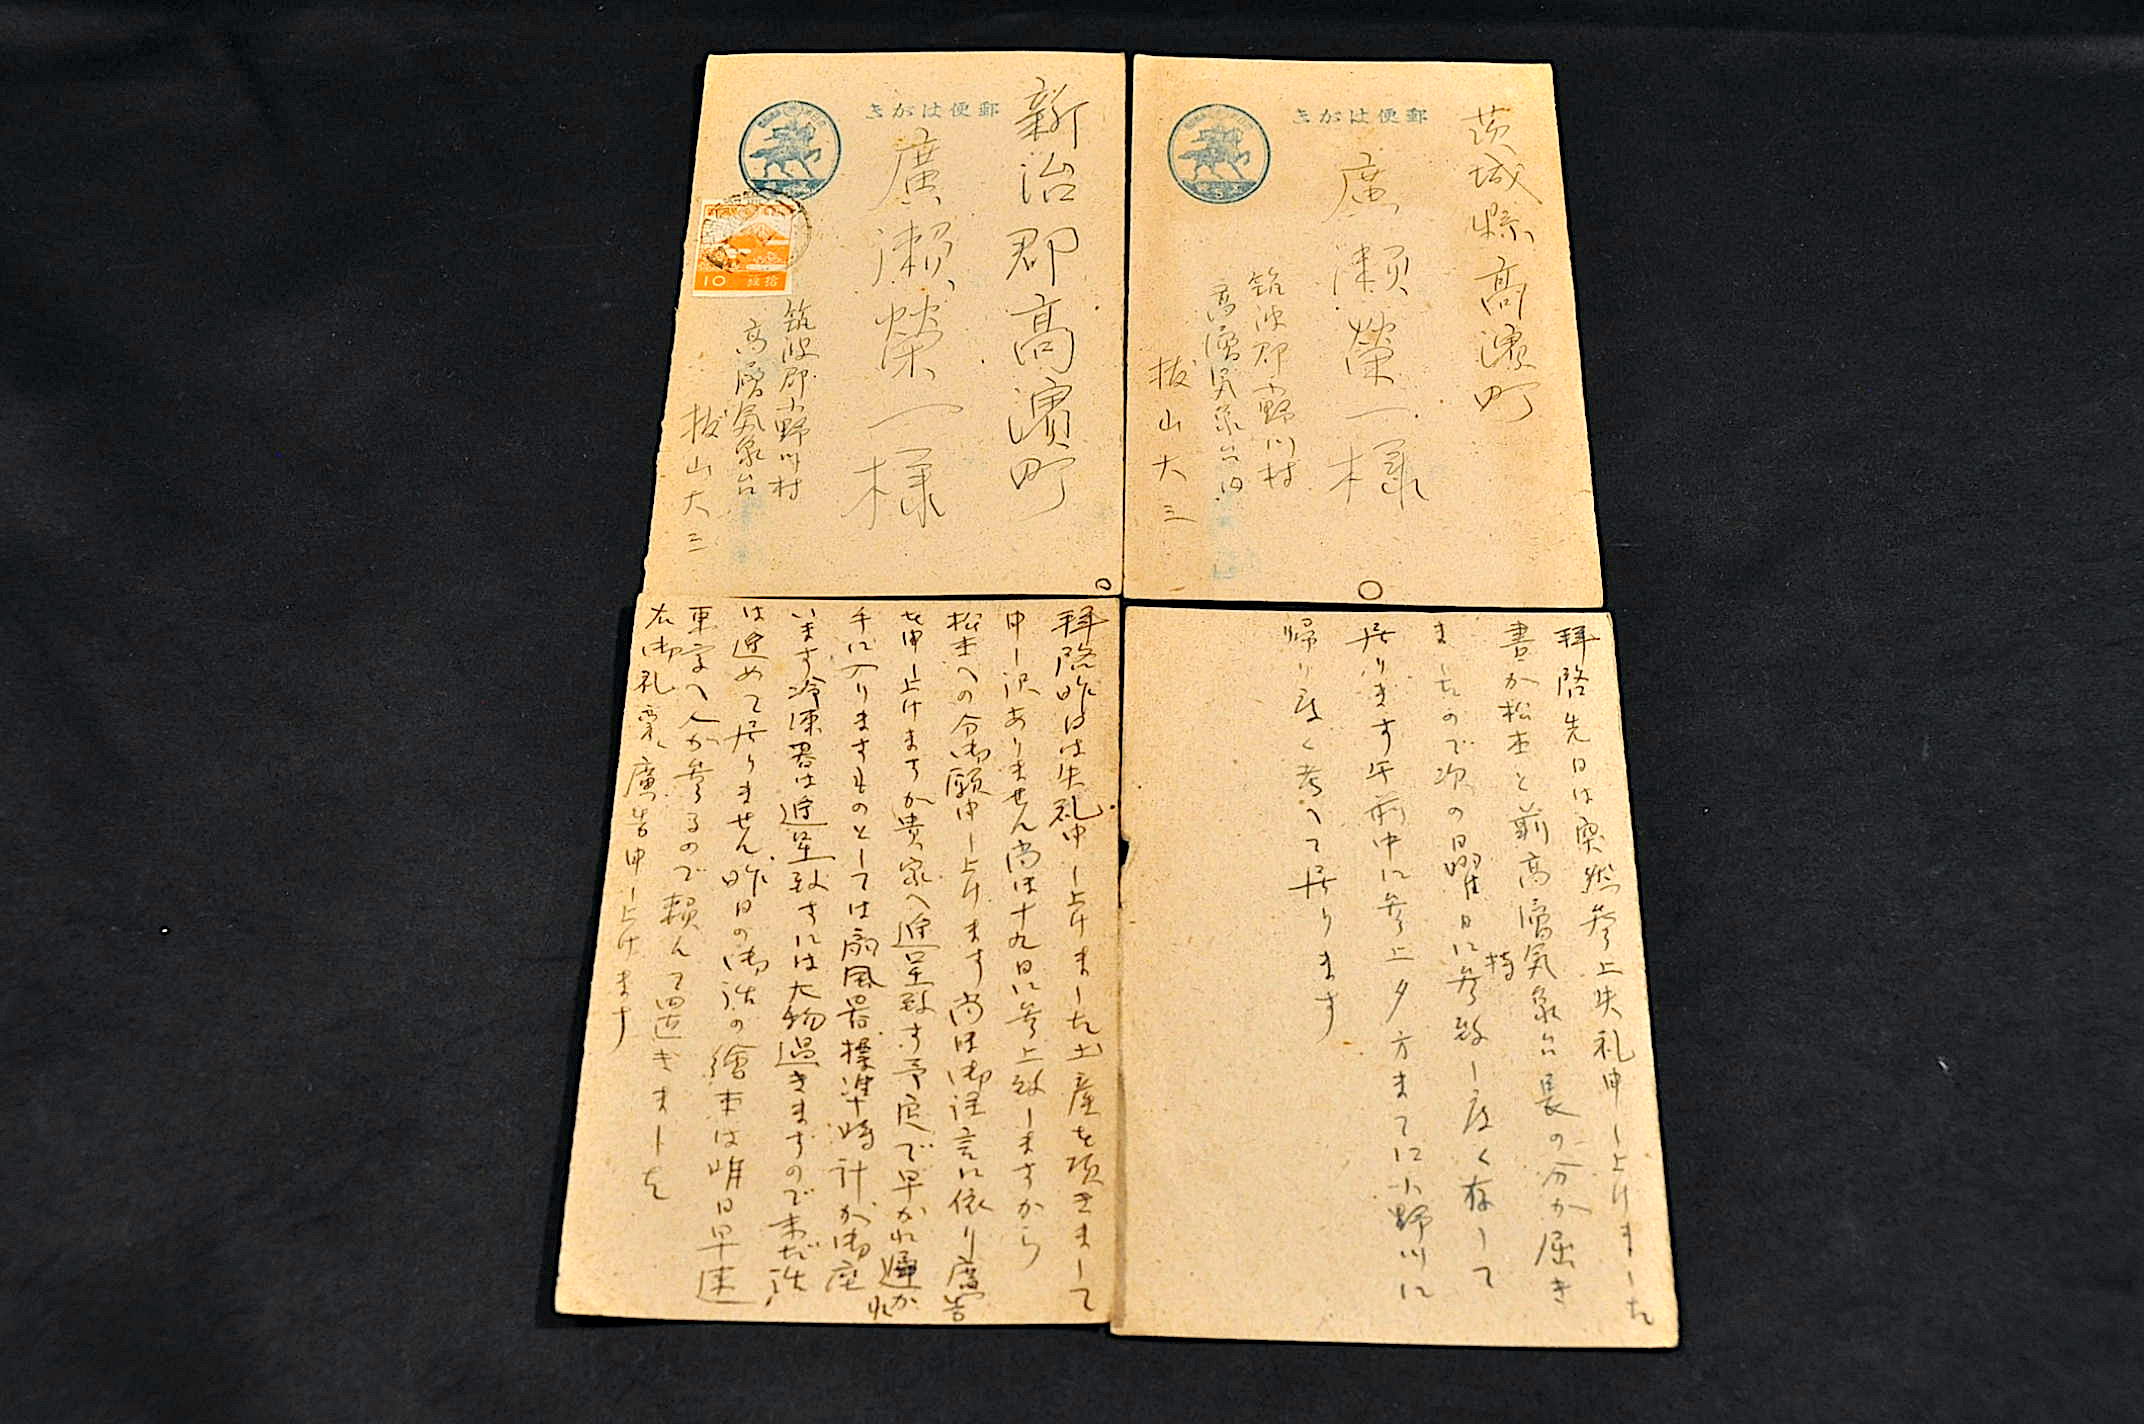 茨城縣高濱町
郵便はがき
廣瀬榮一様
筑波郡小野川村
高層気象台内
抜山大三
新治郡高濱町
郵便はがき
廣瀬榮一様
筑波郡小野川村
高層気象台
抜山大三
10 拾銭
拝啓先日は突然参上失礼申し上けました
書か松本と前高層気象台長の分か届き
ましたので次の日曜日に持参致し度く存して
居ります午前中に参上夕方まてに小野川に
帰り度く考へて居ります
拝啓昨日は失礼申し上けました土産を頂きまして
申し訳ありません尚ほ十九日に参上致しますから
松本への分御願申し上けます尚ほ御証言に依り廣告
を申し上けますか貴家へ進呈致す予定で早かれ遅かれ
手に入りますものとしては扇風器標準時計が御座
います冷凍器は進呈致すには大物過きますので未だ話
は進めて居りません昨日の御話の繪本は明日早速
東京へ人か参るので頼んて置きました
右御礼豪廣告申し上けます